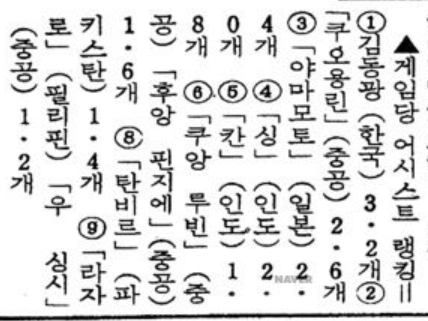 ▲게임당 어시스트 랭킹=
①김동광 (한국) 3·2개 ②
「쿠오용린」(중공) 2·6개
③「야마모토」(일본) 2·
4개 ④「싱」 (인도) 2·
0개 ⑤「칸」 (인도) 1·
8개 ⑥「쿠앙 루빈」(중
공) 「후앙 핀지에」(중공)
1·6개 ⑧「탄비르」(파
키스탄) 1·4개 ⑨「라자
로」 (필리핀) 「우 싱시」
(중공) 1·2개
NAVER